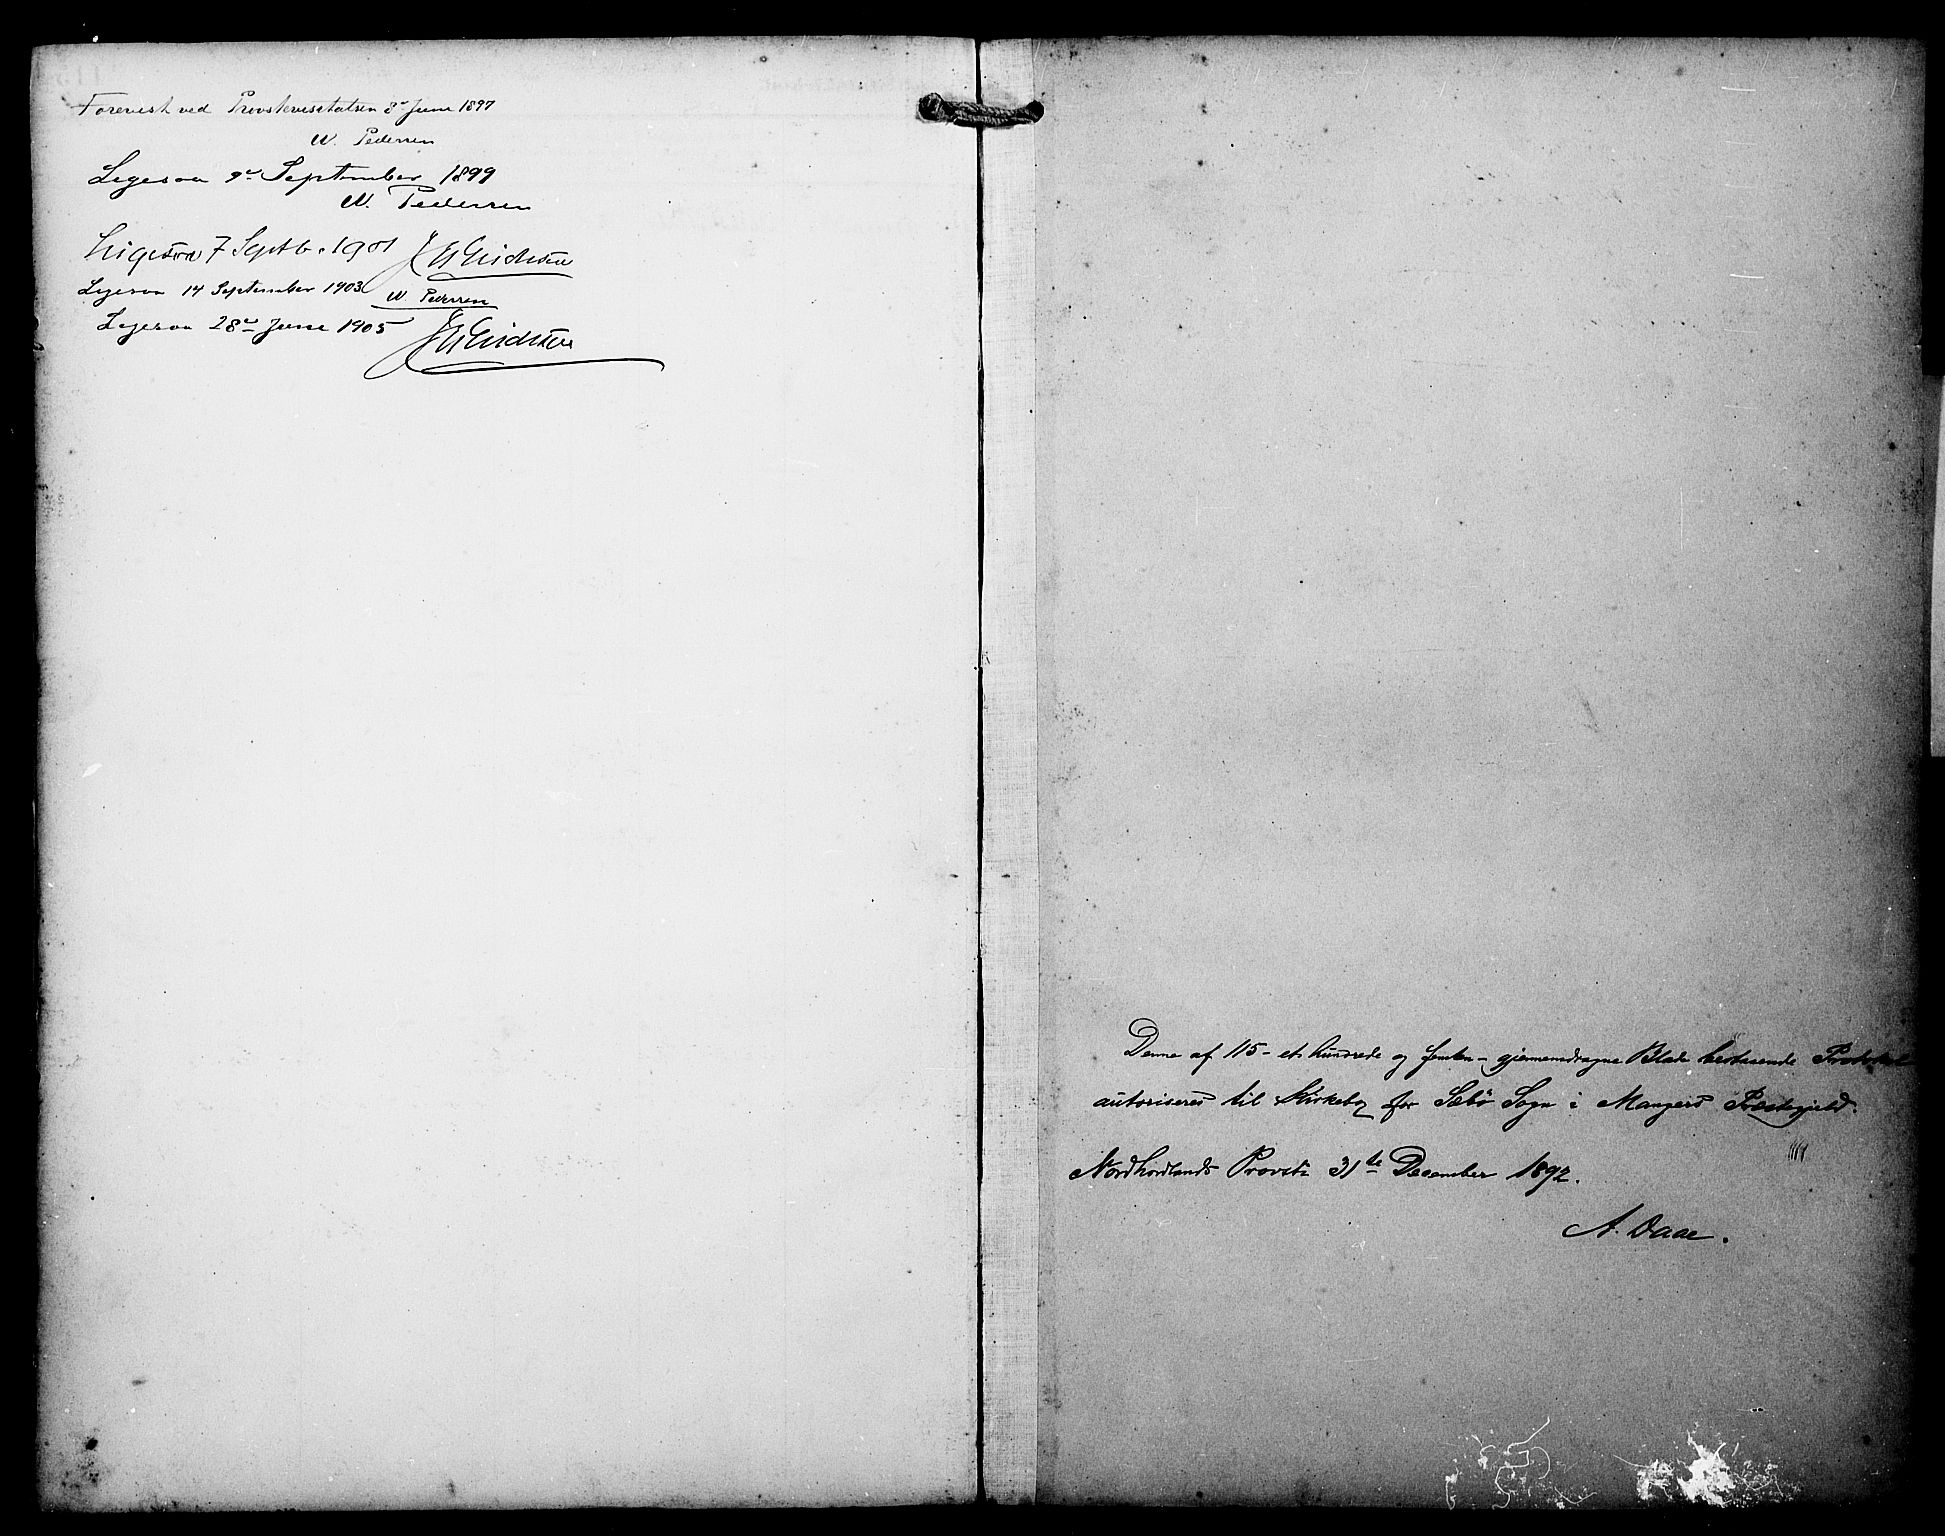 Forevist ved Provstevisitatsen 8de Juni 1897
N. Pedersen
Ligesaa 9de September 1899
N. Pedersen
Ligesaa 7 Septb. 1901
Ligesaa 14 September 1903 N. Pedersen
Ligesaa 28de Juni 1905
Denne af 115 - et hundrede og femten - gjennemdragne Blade bestaaende Protokol
autoriseres til Kirkebog for Sæbö Sogn i Mangers Præstegjeld.
Nordhordlands Provsti 31te December 1892.
A. Daae.